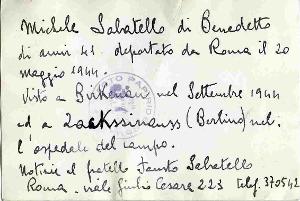 Michele Sabatello di Benedetto
di anni 41. deportato da Roma il 20
maggio 1944.
Visto a Birkenau nel Settembre 1944
ed a (Berlino) nel
l'ospedale del campo.
Notizie il fratello Fausto Sabatello
Roma - viale Giulio Cesare 223 telef. 370542